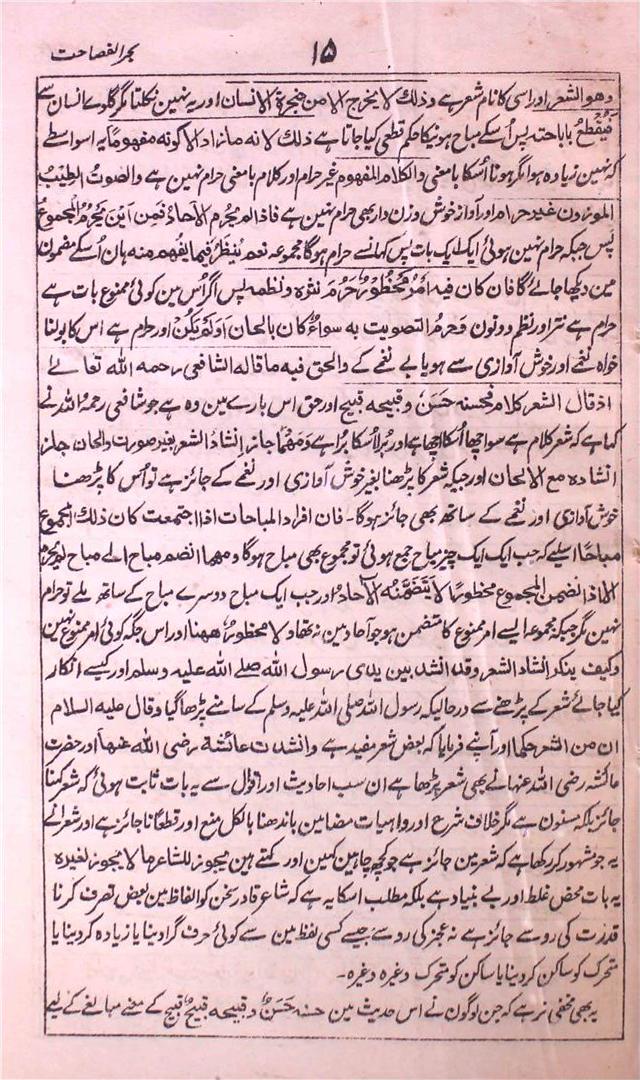 ۱۵ بحر الفصاحت
وهو الشعر اور اسی کا نام شعر ہے وذلك لا يخرج الا من حنجرة الانسان اور یہ نہین نکلتا مگر گلوے انسان سے
فيقطع باباحته پس اُسکے مباح ہونیکا حکم قطعی کیا جاتا ہے ذلك لانه ما زاد الا كونه مفهوما یہ اسواسطے
کہ نہین زیادہ ہوا مگر ہونا اُسکا بامعنی والكلام المفهوم غیر حرام اور کلام بامعنی حرام نہین ہے والصوت الطيب
الموزون غير حرام اور آواز خوش وزن دار بھی حرام نہین ہے فاذا لم يحرم الآحاد فمن اين يحرم المجموع
پس جبکہ حرام نہین ہوئی ایک ایک بات پس کہانسے حرام ہوگا مجموعہ نعم يُنظر فيما يفهم منه ہان اُسکے مضمون
مین دیکھا جائے گا فان كان فيه امر محظور حرم نثره ونظمه پس اگر اُس مین کوئی ممنوع بات ہے
حرام ہے نثر اور نظم دونون وحرم التصويت به سواء كان بالحان او لم يكن اور حرام ہے اس کا بولنا
خواہ نغمے اور خوش آوازی سے ہو یا بے نغمے کے والحق فيه ما قاله الشافعي رحمه الله تعالى
اذ قال الشعر كلام فحسنه حسن وقبيحه قبيح اور حق اس بارے مین وہ ہے جو شافعی رحمہ اللہ نے
کہا ہے کہ شعر کلام ہے سو اچھا اُسکا اچھا ہے اور بُرا اُسکا بُرا ہے ومهما جاز انشاد الشعر بغير صوت والحان جاز
انشاده مع الالحان اور جبکہ شعر کا پڑھنا بغیر خوش آوازی اور نغمے کے جائز ہے تو اُس کا پڑھنا
خوش آوازی اور نغمے کے ساتھ بھی جائز ہوگا۔ فان افراد المباحات اذا اجتمعت كان ذلك المجموع
مباحا اسلیے کہ جب ایک ایک چیز مباح جمع ہوئی تو مجموع بھی مباح ہوگا ومهما انضم مباح الى مباح لم يحرم
الا اذا تضمن المجموع محظورا لا تتضمنه الآحاد اور جب ایک مباح دوسرے مباح کے ساتھ ملے تو حرام
نہین مگر جبکہ مجموعہ ایسے امر ممنوع کا متضمن ہو جو آحاد مین نہ تھا ولا محظور ههنا اور اس جگہ کوئی امر ممنوع نہین
وكيف ينكر انشاد الشعر وقد انشد بين يدى رسول الله صلى الله عليه وسلم اور کیسے انکار
کیا جائے شعر کے پڑھنے سے درحالیکہ رسول اللہ صلی اللہ علیہ وسلم کے سامنے پڑھا گیا وقال عليه السلام
ان من الشعر حكما اور آپنے فرمایا کہ بعض شعر مفید ہے وانشدت عائشة رضى الله عنها اور حضرت
عائشہ رضی اللہ عنہا نے بھی شعر پڑھا ہے ان سب احادیث اور اقوال سے یہ بات ثابت ہوئی کہ شعر کہنا
جائز بلکہ مسنون ہے مگر خلاف شرع اور واہیات مضامین باندھنا بالکل منع اور قطعًا ناجائز ہے اور شعرائے
یہ جو مشہور کر رکھا ہے کہ شعر مین جائز ہے جو کچھ چاہین کہین اور کہتے ہین يجوز للشاعر ما لا يجوز لغيره
یہ بات محض غلط اور بے بنیاد ہے بلکہ مطلب اسکا یہ ہے کہ شاعر قادر سخن کو الفاظ مین بعض تصرف کرنا
قدرت کی رو سے جائز ہے نہ عجز کی رو سے جیسے کسی لفظ مین سے کوئی حرف گرا دینا یا زیادہ کر دینا یا
متحرک کو ساکن کر دینا یا ساکن کو متحرک وغیرہ وغیرہ۔
یہ بھی مخفی نرہے کہ جن لوگون نے اس حدیث مین حسنه حسن وقبيحه قبيح قبیح کے معنے مبالغے کے لیے